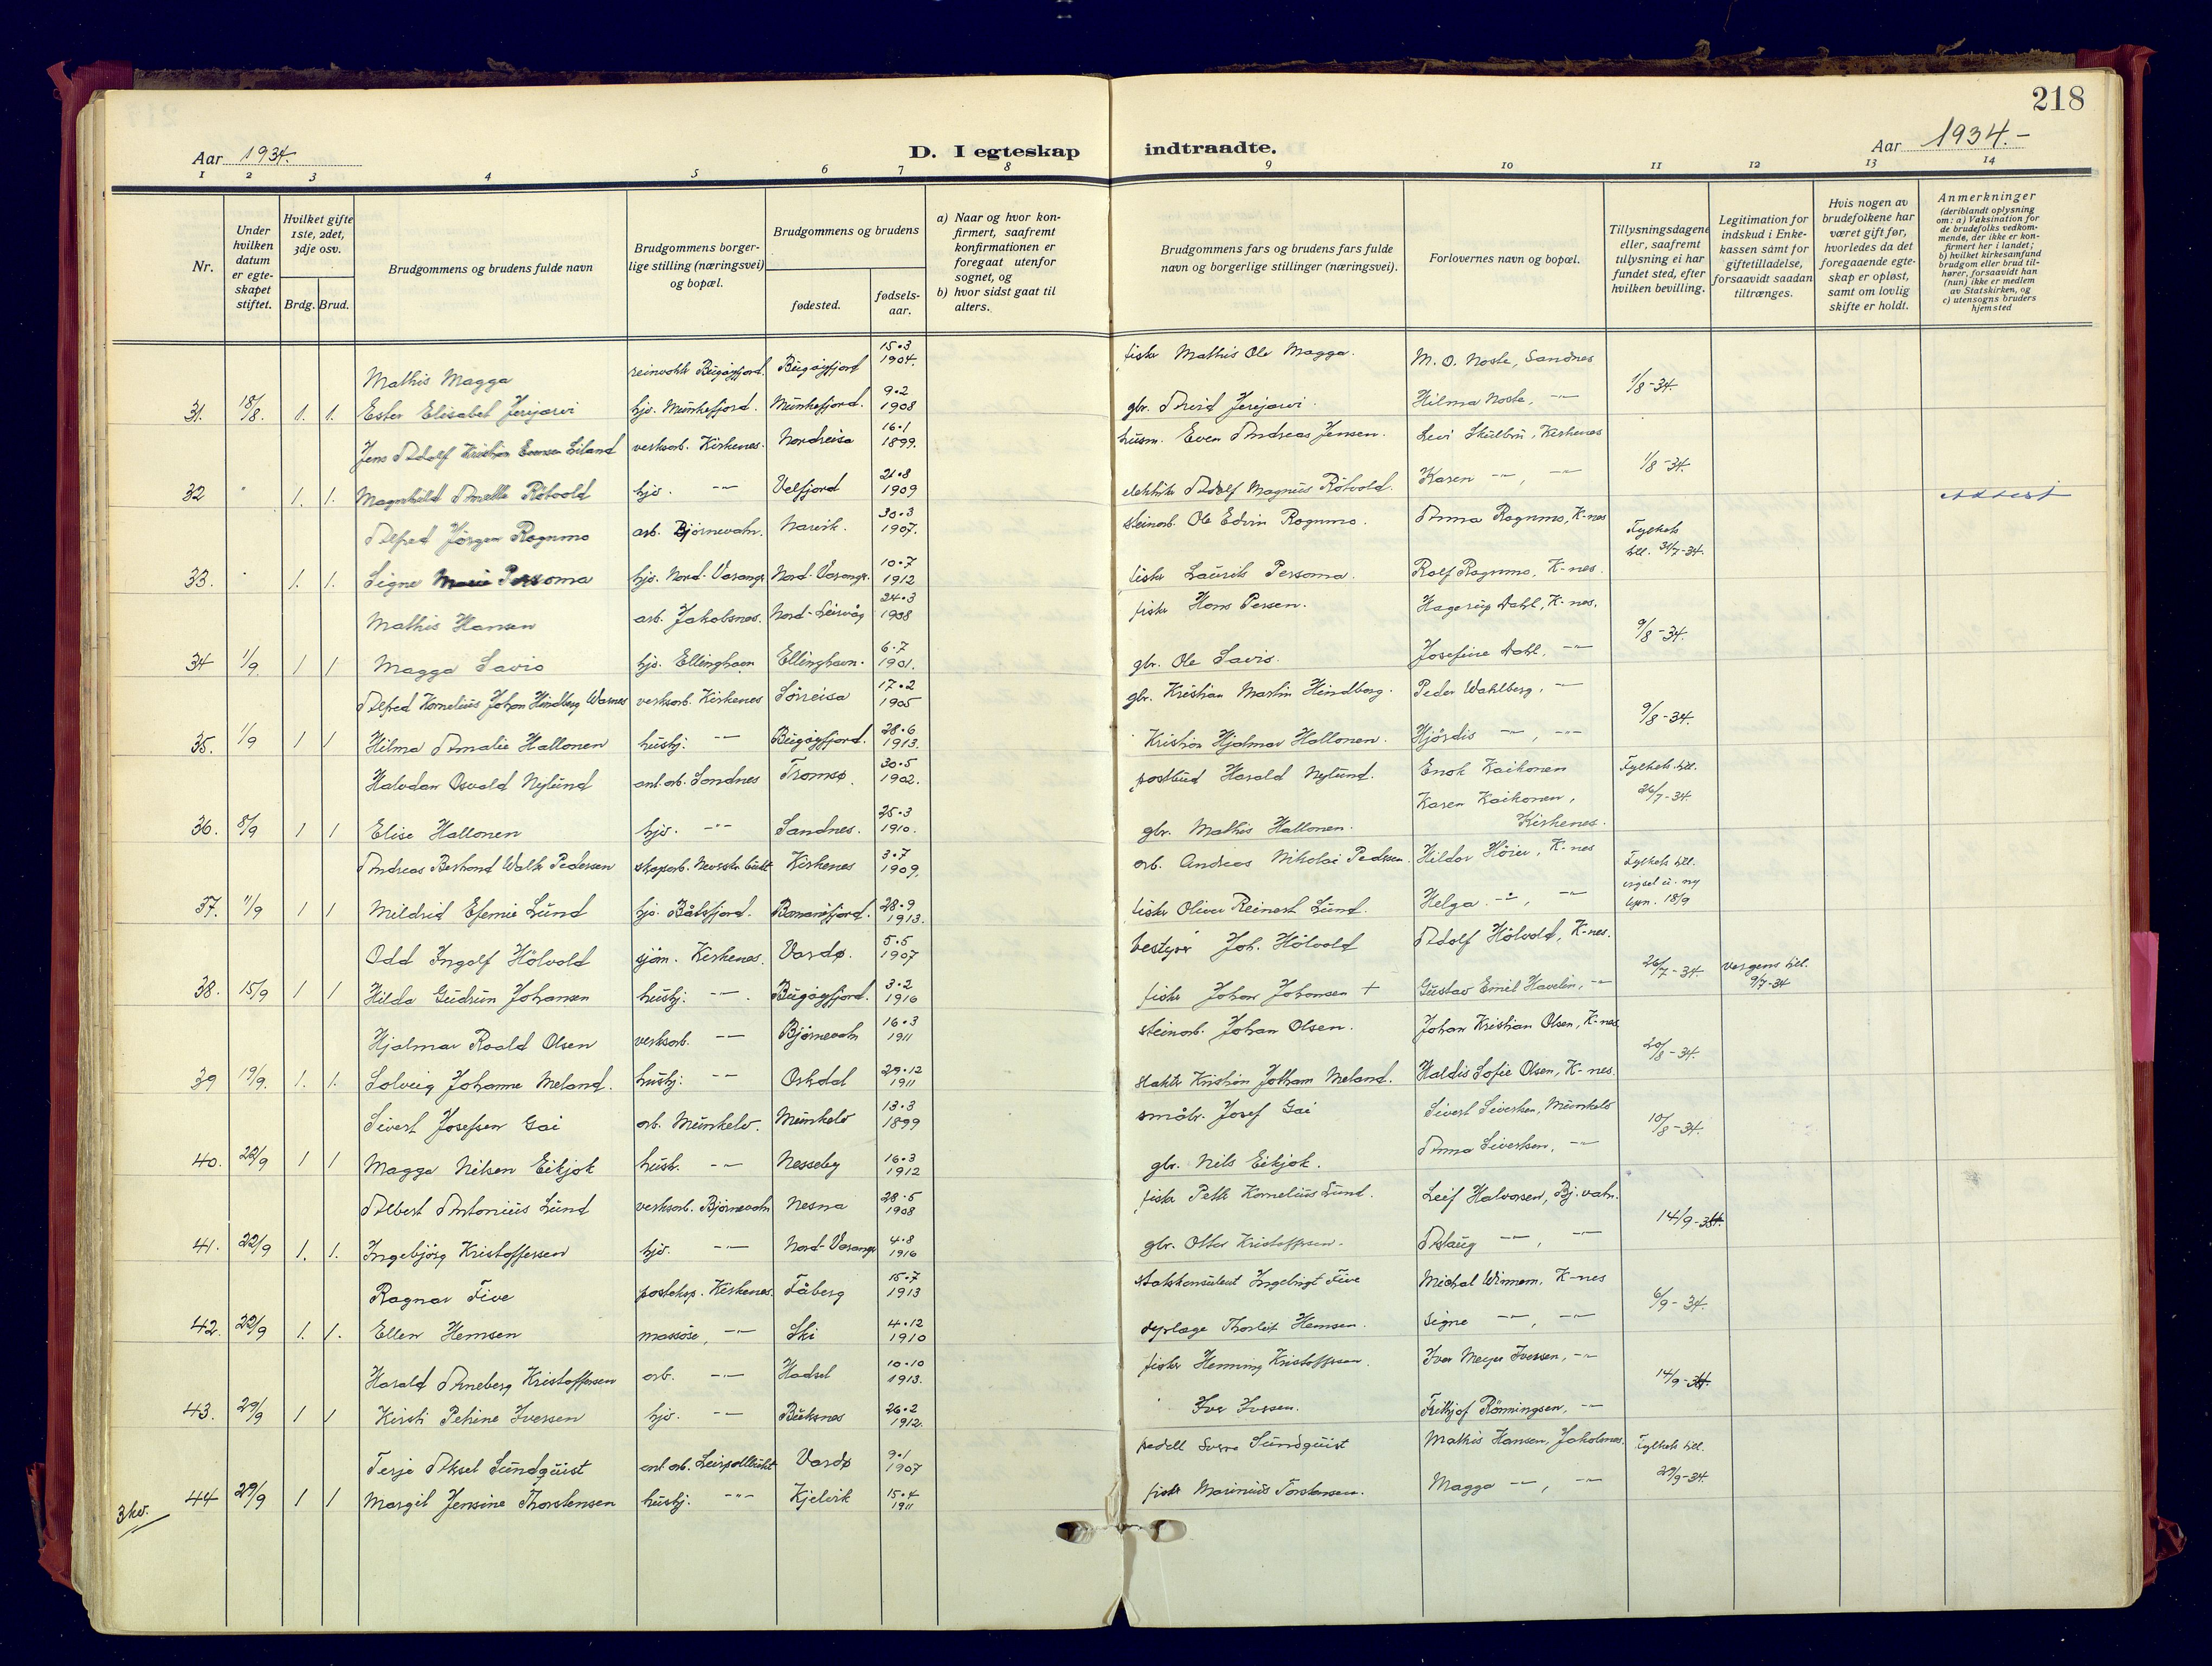 218
Aar 1934.
D. I egteskap indtraadte.
Aar 1934.-
1 2 3 4 5 6 7 8 9 10 11 12 13 14
Nr.
Under hvilken datum er egteskapet stiftet.
Hvilket gifte 1ste, 2det, 3dje osv.
Brdg. Brud.
Brudgommens og brudens fulde navn
Brudgommens borgerlige stilling (næringsvei) og bopæl.
Brudgommens og brudens
fødested.
fødselsaar.
a) Naar og hvor konfirmert, saafremt konfirmationen er foregaat utenfor sognet, og
b) hvor sidst gaat til alters.
Brudgommens fars og brudens fars fulde navn og borgerlige stillinger (næringsvei).
Forlovernes navn og bopæl.
Tillysningsdagene eller, saafremt tillysning ei har fundet sted, efter hvilken bevilling.
Legitimation for indskud i Enkekassen samt for giftetilladelse, forsaavidt saadan tiltrænges.
Hvis nogen av brudefolkene har været gift før, hvorledes da det foregaaende egteskap er opløst, samt om lovlig skifte er holdt.
Anmerkninger
(deriblandt oplysning om: a) Vaksination for de brudefolks vedkommende, der ikke er konfirmert her i landet; b) hvilket kirkesamfund brudgom eller brud tilhører, forsaavidt han (hun) ikke er medlem av Statskirken, og c) utensogns bruders hjemsted
Mathis Magga reinvokter Bugøyfjord. Bugøyfjord 15.3 1904. fisker Mathis Ole Magga. M. O. Noste, Sandnes
31. 18/8. 1. 1. Ester Elisabet Jerijærvi hjv. Munkefjord. Munkefjord. 9.2 1908 gbr. Arvid Jerijærvi. Hilma Noste, -"- 1/8-34.
Jens Adolf Kristian Evensen Liland verksarb. Kirkenes. Nordreisa 16.1 1899. husm. Even Andreas Jensen. Levi Skulbru, Kirkenes
32 " 1. 1. Magnhild Anette Røtvold hjv. -"- Velfjord 21.8 1909 elektriker Adolf Magnus Røtvold. Karen -"-, -"- 1/8-34.
Alfred Jörgen Rognmo arb. Bjørnevatn. Narvik. 30.3 1907. steinarb. Ole Edvin Rognmo. Anna Rognmo, K-nes
33. " 1. 1. Signe Persoma hjv. Nord-Varanger Nord-Varanger. 10.7 1912 fisker Laurits Persoma. Rolf Rognmo, K-nes. Fylkets till. 31/7-34.
Mathis Hansen arb. Jakobsnes. Nord-Leirvåg 24.3 1908 fisker Hans Persen. Hagerup Dahl, K-nes.
34 1/9. 1 1 Magga Savio hjv. Ellinghavn Ellinghavn. 6.7 1901. gbr. Ole Savio. Josefine Dahl, -"- 9/8-34.
Alfred Kornelius Johan Hindberg Warnes verksarb. Kirkenes Sørreisa 17.2 1905 gbr. Kristian Martin Hindberg. Peder Wahlberg, -"-
35. 1/9 1 1 Hilma Amalie Hallonen hushj. -"- Bugøyfjord. 28.6 1913. " Kristian Hjalmar Hallonen. Hjørdis -"-, -"- 9/8-34.
Halvdan Osvald Nylund anl.arb. Sandnes Tromsø. 30.5 1902. postbud Harald Nylund. Enok Kaikonen Fylkets till.
36. 8/9 1 1 Elise Hallonen hjv. -"- Sandnes. 25.3 1910. gbr. Mathis Hallonen. Karen Kaikonen, Kirkenes. 26/7-34.
Andreas Berthand Walter Pedersen Kirkenes 3.7 1909. arb. Andreas Nikolai Pedersen. Hildor Höier, K-nes Fylkets till.
37. 11/9 1 1 Mildrid Efemie Lund hjv. Båtsfjord. 28.9 1913. fisker Oliver Reinert Lund. Helga -"-, -"-
Odd Ingolf Hölvold sjøm. Kirkenes. Vardø. 5.5 1907 bestyrer Joh. Hölvold Adolf Hölvold, K-nes.
38. 15/9 1 1 Hilda Gudrun Johansen hushj. -"-. Bugøyfjord. 3.2 1916 fisker Johan Johansen + Gustav Emil Havelin, -"- 26/7-34. vergens till. 9/7-34
Hjalmar Roald Olsen verksarb. -"- Bjørnevatn 16.3 1911 steinarb. Johan Olsen. Johan Kristian Olsen, K-nes.
39 19/9. 1. 1. Solveig Johanne Meland. hushj. -"- Orkdal 29.12 1911 slakter Kristian Jotham Meland. Haldis Sofie Olsen, K-nes. 20/8-34.
Sivert Josefsen Gai arb. Munkelv. Munkelv 13.3 1899 småbr. Josef Gai Sivert Sivertsen, Munkelv
40. 22/9 1 1 Magga Nilsen Eikjok hush. -"- Nesseby 16.3 1912 gbr. Nils Eikjok. Anna Sivertsen, -"- 10/8-34.
Albert Antonius Lund verksarb. Bjørnevatn Nesna 28.5 1908 fisker Petter Kornelius Lund. Leif Halvorsen, Bj.vatn.
41. 22/9 1. 1. Ingebjörg Kristoffersen hjv. -"- Nord-Varanger 4.8 1916 gbr. Ottar Kristoffersen. Aslaug -"-, -"- 14/9-34.
Ragnar Five posteksp. Kirkenes. Fåberg 15.7 1913 statskonsulent Ingebrigt Five Michal Winnem, K-nes
42. 22/9 1. 1. Ellen Hemsen massøse, -"- Ski 4.12 1910 dyrlæge Thorleif Hemsen. Signe -"-, -"- 6/9-34.
Harald Arneberg Kristoffersen arb. -"- Hadsel 10.10 1913. fisker Henning Kristoffersen. Ivar Meyer Iversen, -"-
43. 29/9 1 1 Kirsti Petrine Iversen hjv. -"- Buksnes 26.2 1912. " Ivar Iversen. Fritjof Rönningsen, -"- 14/9-34.
Terje Aksel Sundquist anl.arb. Leirpollbukt Vardø 9.1 1907 pedell Sverre Sundquist Mathis Hansen, Jakobsnes. Fylkets till.
44 29/9 1 1 Margit Jensine Thorstensen hushj. -"- Kjelvik 15.4 1911 fisker Marinius Torstensen. Magga -"-, -"- 29/9-34.
3 kv.